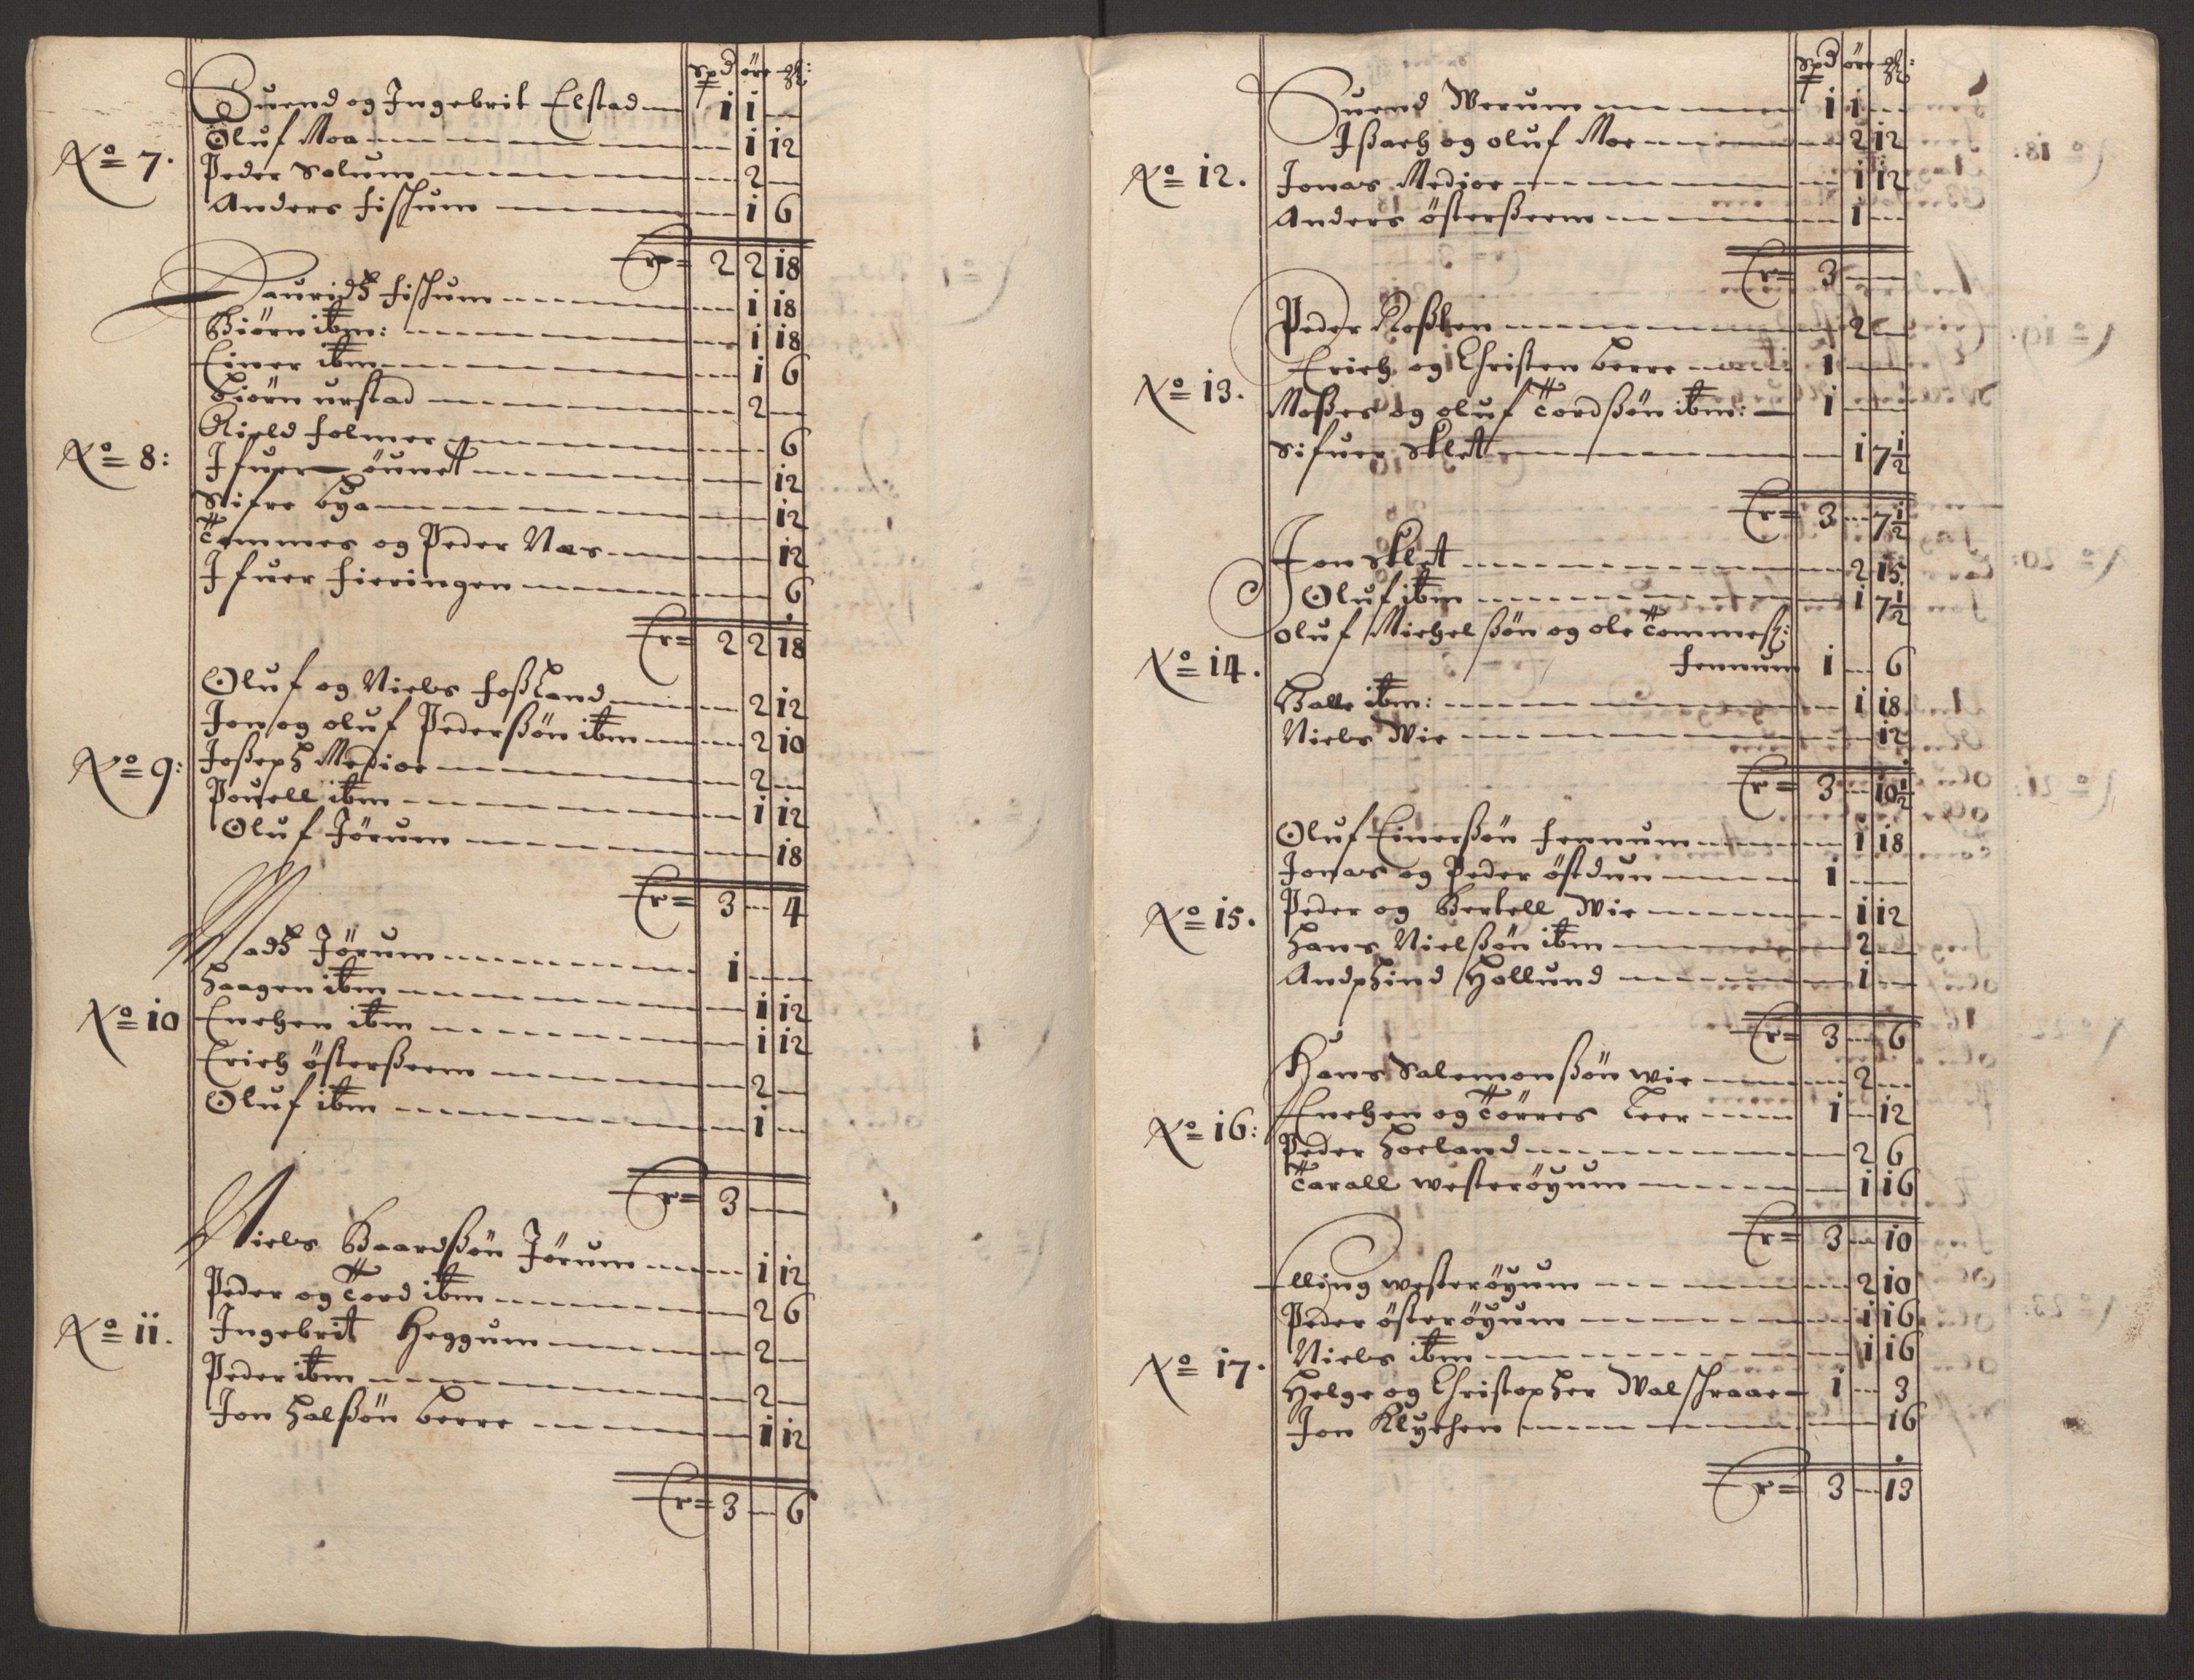 Spd øre ȝ:
Suend og Ingebrit Elstad 1 1 -
Oluf Moa - 1 12
No 7. Peder Solum - 2 -
Anders Fischum - 1 6
Er= 2 2 18
Lauridz Fischum - 1 18
Biörn ibm: - 1 18
Einer ibm - 1 6
Biörn urstad - 2 -
Kield Folmer - 6
No 8: Ifuer öunett - 12
Sifre bya - 12
Tommes og Peder Næs - 12
Ifuer Fieringen - 6
Er= 2 2 18
Oluf og Niels Foßland - 2 12
Jon og oluf Pederßön ibm - 2 10
No 9: Joßeph Medioe - 2 -
Pouell ibm - 1 12
Oluf Jörum - 18
Er= 3 - 4
Madz Jörum 1 - -
Haagen ibm - 1 12
No 10 Enchen ibm - 1 12
Erich österßeem - 2 -
Oluf ibm - 1 -
Er= 3 - -
Niels Baardßön Jörum - 1 12
Peder og Tord ibm - 2 6
No 11. Ingebrit Heggum - 2 -
Peder ibm - 2 -
Jon Halßön berre - 1 12
Er= 3 - 6
Spd øre ȝ:
Suend Werum 1 1 -
Ißach og oluf Moe - 2 12
No 12. Jonas Medioe - 1 12
Anders österßeem - 1 -
Er= 3 - -
Peder Roßten - 2 -
Erich og Christen berre 1 - -
No 13. Moßes og oluf Tordßön ibm: 1 - -
Sifuer Sklett - 1 7½
Er= 3 - 7½
Jon Sklett - 2 15
Oluf ibm - 1 7½
Oluf Michelßön og ole Tommeß:
No 14. Fennum 1 - 6
Balle ibm: - 1 18
Niels Wie - 12
Er= 3 - 10½
Oluf Einerßön Fennum - 1 18
Jonas og Peder östdun 1 - -
No 15. Peder og Bertell Wie - 1 12
Hans Nielßön ibm - 2 -
Andphind Hollund - 1 -
Er= 3 - 6
Hans Salomonßön wie - 2 -
Enchen og Törres Leer 1 - 12
No 16: Peder Hoeland - 2 6
Tarall westeröyum - 1 16
Er= 3 - 10
Elling westeröyum - 2 10
Peder österöyum - 1 16
No 17. Niels ibm - 1 16
Helge og Christopher Walschraae 1 - 3
Jon Klychen - 16
Er= 3 - 13